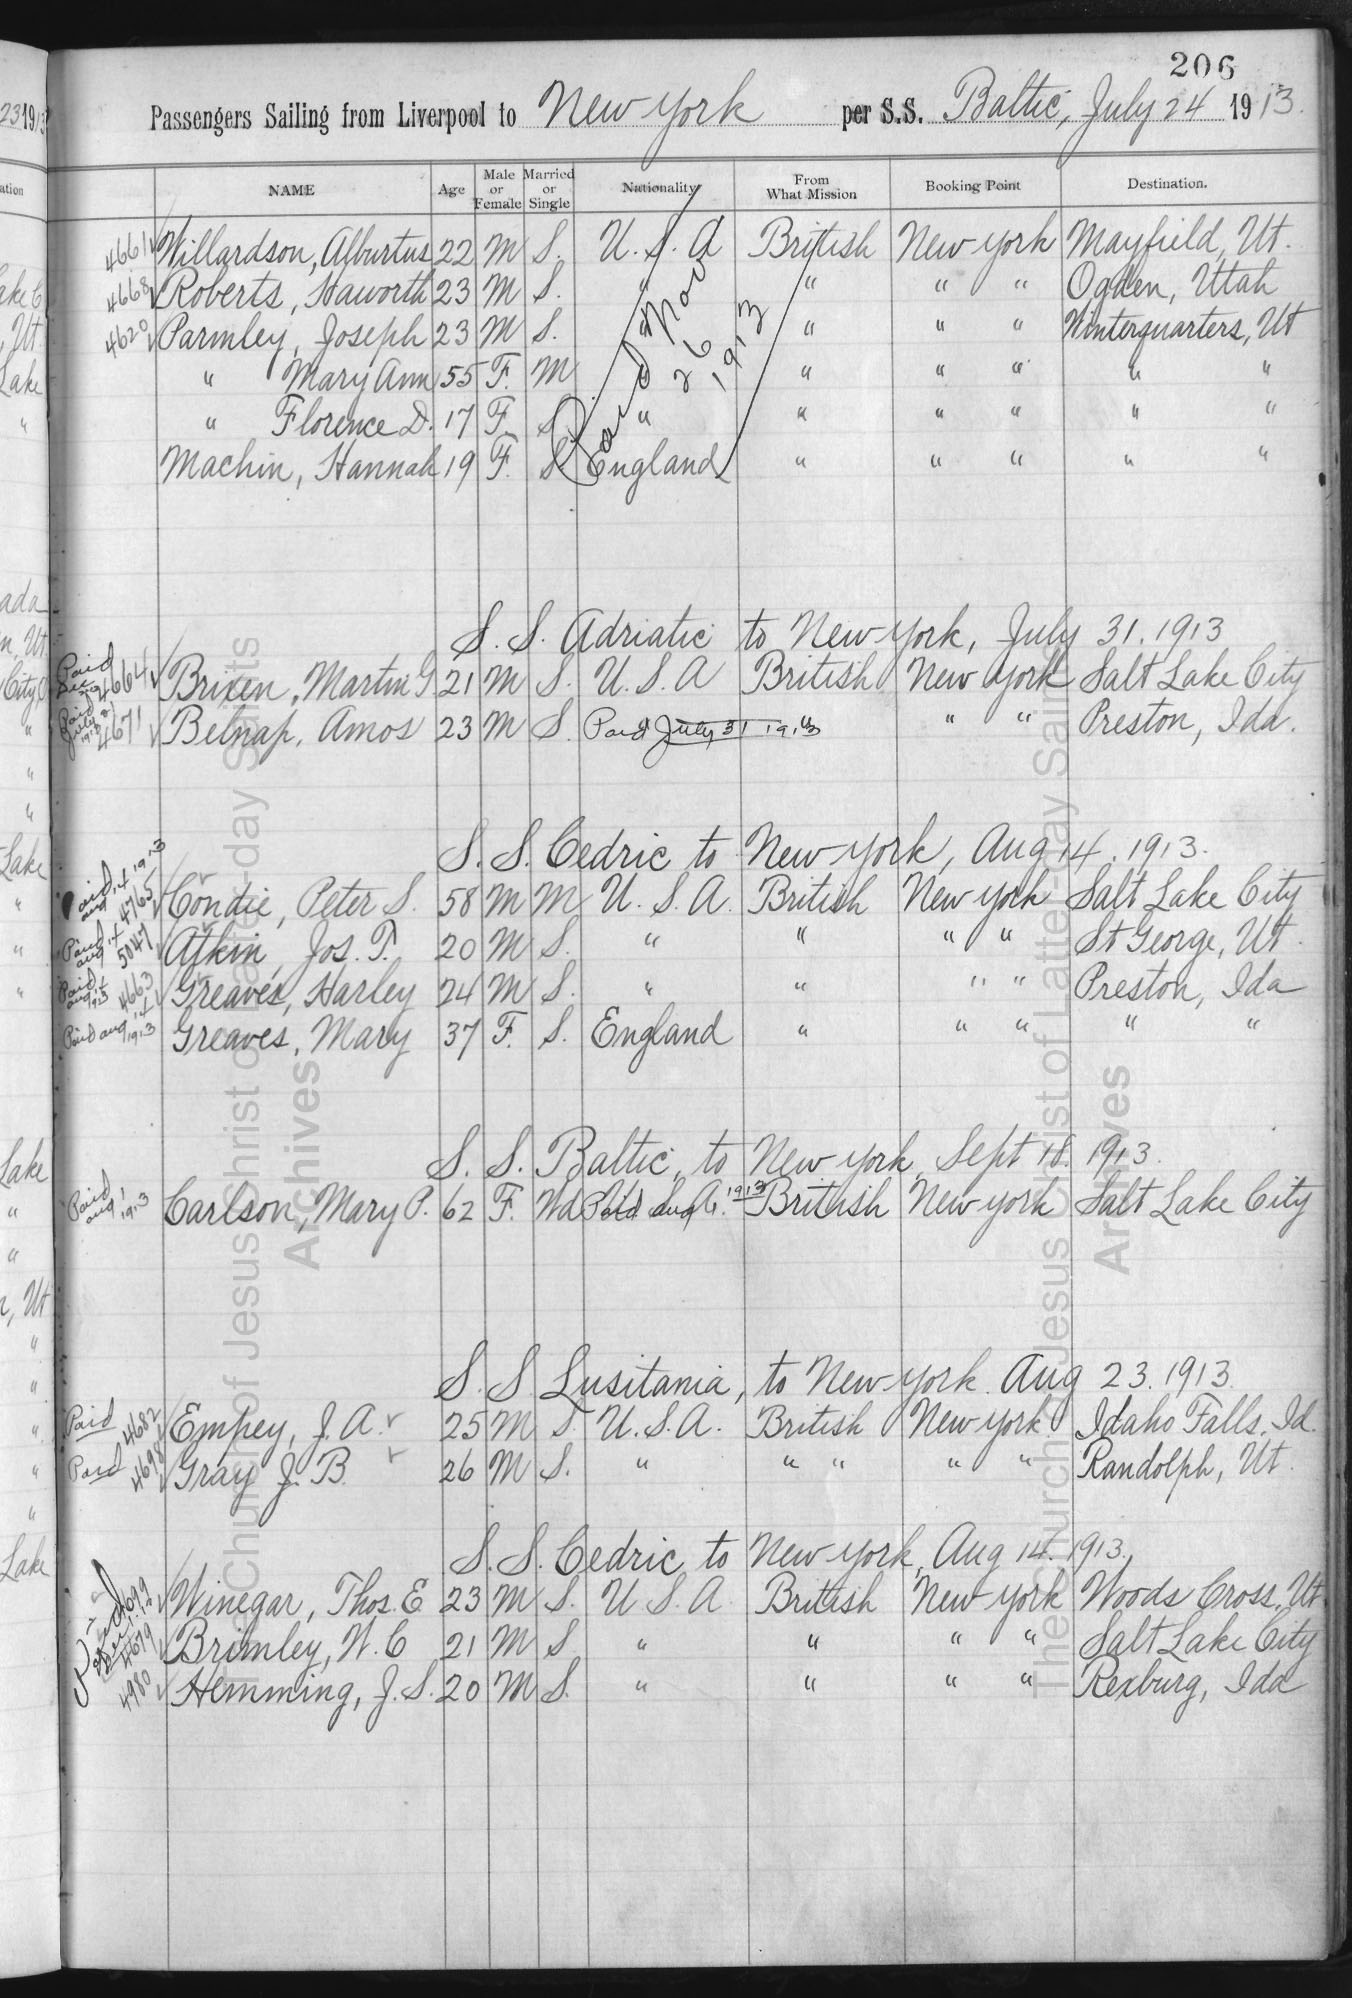 206
Passengers Sailing from Liverpool to New York per S.S. Baltic, July 24 1913.
NAME Age Male or Female Married or Single Nationality From What Mission Booking Point Destination.
4661 Willardson, Alburtus 22 M S. U. S. A British New York Mayfield, Ut.
4668 Roberts, Haworth 23 M S. " " " " Ogden, Utah
4620 Parmley, Joseph 23 M S. " " " Winterquarters, Ut
" Mary Ann 55 F. M " " " " "
" Florence D. 17 F. S " " " " " "
Machin, Hannah 19 F. S. England " " " " "
Paid Nov 26 1913
S. S. Adriatic to New York, July 31. 1913
Paid Dec 4664 Brixen, Martin G 21 M S. U. S. A British New York Salt Lake City
Paid July 1913 4671 Belnap, Amos 23 M S. Paid July 31 1913 " " Preston, Ida.
S. S. Cedric to New York, Aug 14, 1913.
Paid Aug 14 1913 4765 Condie, Peter S. 58 M M U. S. A. British New York Salt Lake City
Paid Aug 14 5047 Atkin, Jos. T. 20 M S. " " " " St George, Ut.
Paid Aug 14 1913 4663 Greaves, Harley 24 M S. " " " " Preston, Ida
Paid Aug 14 1913 Greaves, Mary 37 F. S. England " " " " "
S. S. Baltic, to New York, Sept 18. 1913.
Paid Aug 1 1913 Carlson, Mary P. 62 F. Wd Paid Aug 1913 British New York Salt Lake City
S. S. Lusitania, to New York. Aug 23. 1913.
Paid 4682 Empey, J. A. 25 M S. U. S. A. British New York Idaho Falls, Id.
Paid 4698 Gray J. B. 26 M S. " " " " " Randolph, Ut.
S. S. Cedric to New York, Aug 14. 1913.
Winegar, Thos. E. 23 M S. U. S. A British New York Woods Cross, Ut
4679 Brimley, W. C 21 M S " " " " Salt Lake City
4980 Hemming, J. S. 20 M S. " " " " Rexburg, Ida
The Church of Jesus Christ of Latter-day Saints
Archives
The Church of Jesus Christ of Latter-day Saints
Archives